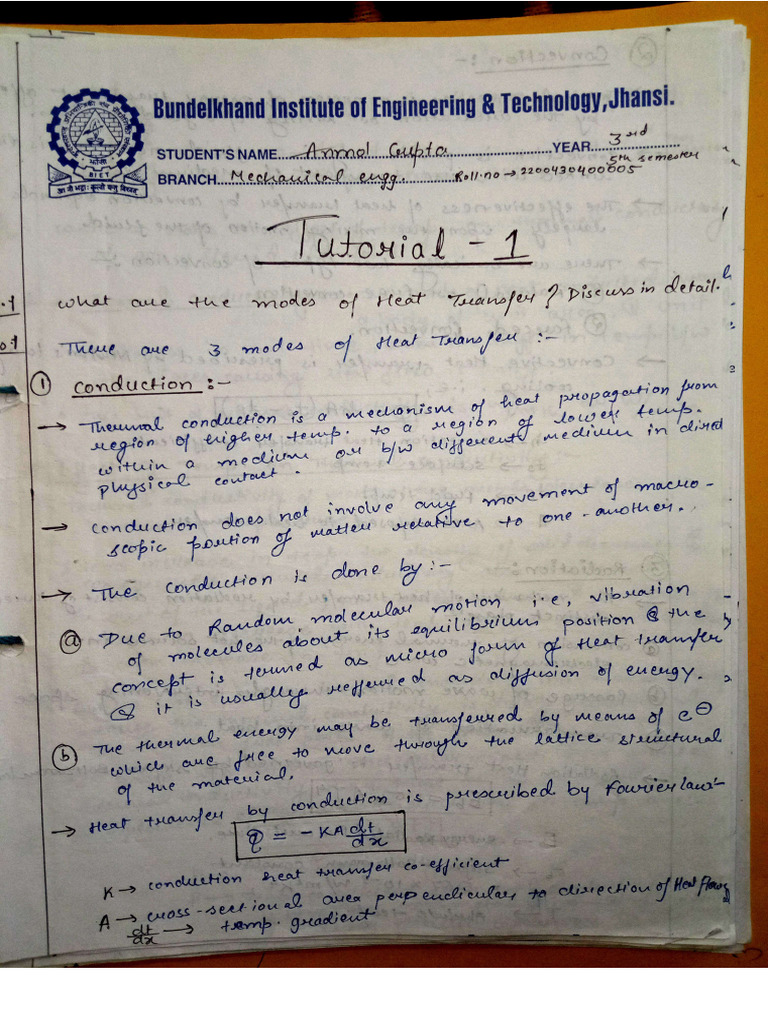 Bundelkhand Institute of Engineering & Technology, Jhansi.
STUDENT'S NAME Anmol Gupta YEAR 3rd
5th semester
BRANCH Mechanical engg. Roll.no → 2200430400605
BIET
Tutorial - 1
What are the modes of Heat Transfer? Discuss in detail.
There are 3 modes of Heat Transfer :-
① Conduction :-
→ Thermal conduction is a mechanism of heat propagation from
region of higher temp. to a region of lower temp.
within a medium or b/w different medium in direct
physical contact.
→ Conduction does not involve any movement of macro-
scopic portion of matter relative to one-another.
→ The conduction is done by :-
ⓐ Due to Random molecular motion i.e, vibration
of molecules about its equilibrium position & the
concept is termed as micro form of Heat transfer
& it is usually reffered as diffusion of energy.
ⓑ The thermal energy may be transferred by means of e⊖
which are free to move through the lattice structural
of the material.
→ Heat transfer by conduction is prescribed by Fourier law:-
q = -KA dt/dx
K → conduction heat transfer co-efficient
A → cross-sectional area perpendicular to direction of Heat flow
dt/dx → temp. gradient